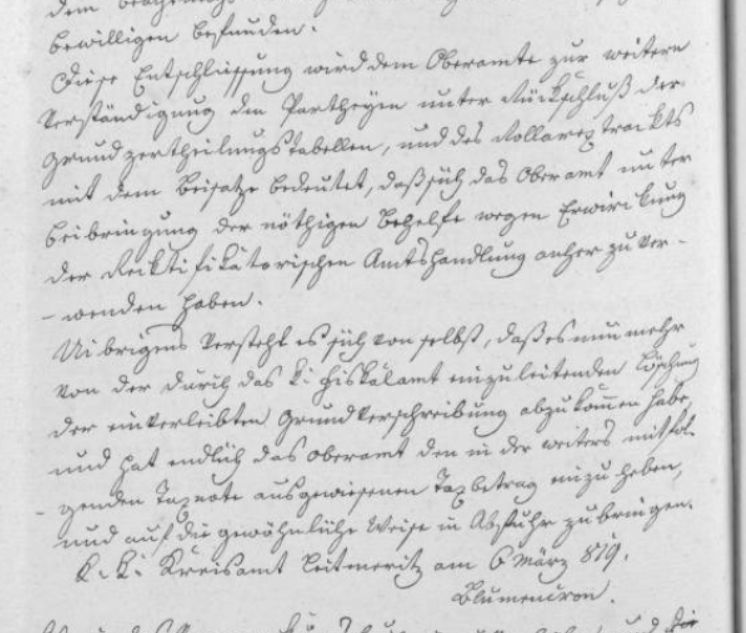 bewilligen befunden.
Diese Entschliessung wird dem Oberamte zur weitern
Verständigung der Partheyen unter Rückschluß der
Grundzertheilungstabellen, und des Kollarextrackts
mit dem Beisatze bedeutet, daß sich das Oberamt unter
Beibringung der nöthigen Behelfe wegen Erwirckung
der Recktifikatorischen Amtshandlung anher zu ver-
- wenden haben.
Uibrigens versteht es sich von selbst, daß es nun mehr
von der durch das k: Fiskalamt einzuleitenden Löschung
der einverleibten Grundverschreibung abzukom̅en habe,
und hat endlich das Oberamt den in der weiters mitfol-
- genden Taxnote ausgewiesenen Taxbetrag einzuheben,
und auf die gewöhnliche Weise in Abfuhr zu bringen.
K. K: Kreisamt Leitmeritz am 6 März 819.
Blumencron.